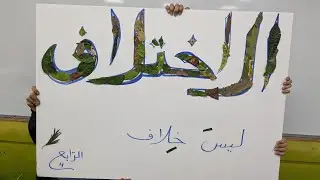 الإختلاف
ليسَ خِلاف
الرّابع